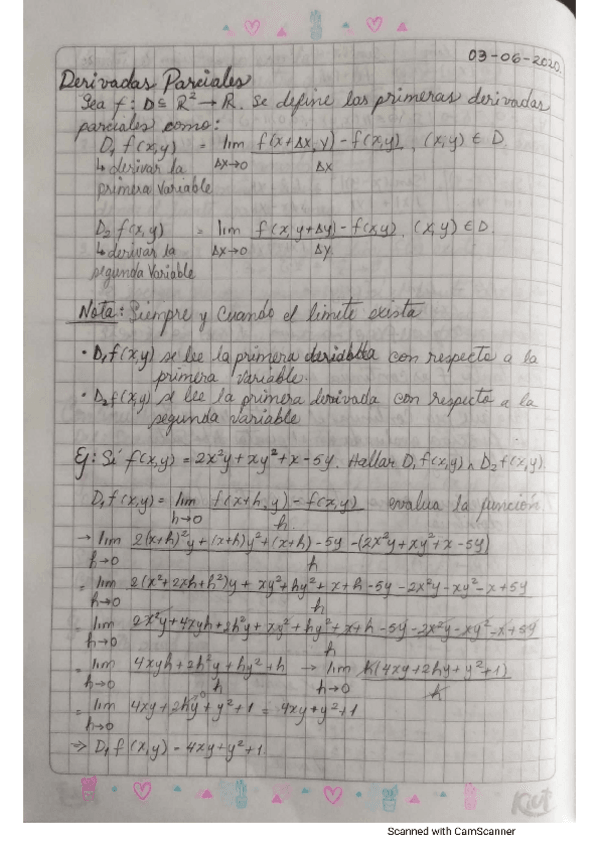 03-06-2020.
Derivadas Parciales
Sea f: D ⊆ R² → R. Se define las primeras derivadas
parciales como:
D₁ f(x,y) = lim f(x+Δx, y) - f(x,y) , (x,y) ∈ D.
↳ derivar la Δx→0 Δx
primera variable
D₂ f(x,y) = lim f(x, y+Δy) - f(x,y) , (x,y) ∈ D.
↳ derivar la Δx→0 Δy
segunda variable
Nota: Siempre y cuando el limite exista
• D₁f(x,y) se lee la primera con respecto a la
primera variable.
• D₂f(x,y) se lee la primera derivada con respecto a la
segunda variable
Ej: Si f(x,y) = 2x²y + xy² + x - 5y. Hallar D₁f(x,y) ∧ D₂f(x,y).
D₁f(x,y) = lim f(x+h, y) - f(x,y) evalua la función
h→0 h
→ lim 2(x+h)²y + (x+h)y² + (x+h) - 5y - (2x²y + xy² + x - 5y)
h→0 h
= lim 2(x² + 2xh + h²)y + xy² + hy² + x + h - 5y - 2x²y - xy² - x + 5y
h→0 h
= lim 2x²y + 4xyh + 2h²y + xy² + hy² + x + h - 5y - 2x²y - xy² - x + 5y
h→0 h
= lim 4xyh + 2h²y + hy² + h → lim h(4xy + 2hy + y² + 1)
h→0 h h→0 h
= lim 4xy + 2hy + y² + 1 = 4xy + y² + 1
h→0
⇒ D₁ f(x,y) = 4xy + y² + 1.
Scanned with CamScanner